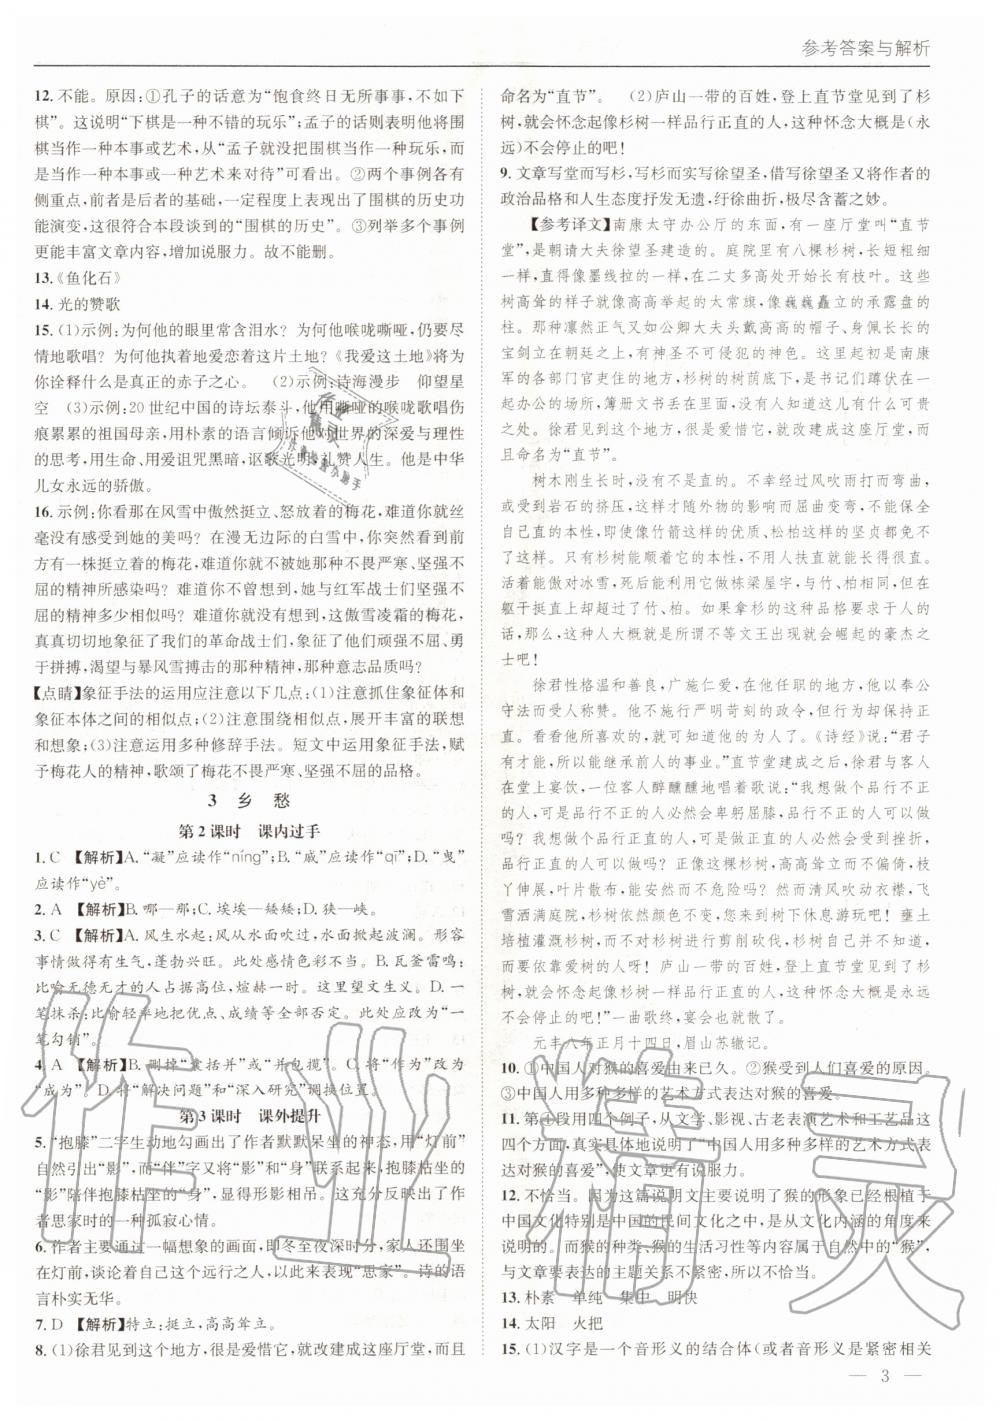 参考答案与解析
12. 不能。原因：①孔子的话意为“饱食终日无所事事，不如下
棋”。这说明“下棋是一种不错的玩乐”；孟子的话则表明他将围
棋当作一种本事或艺术，从“孟子就将围棋当作一种玩乐，而
是当作一种本事或者一种艺术来对待”可看出。②两个事例各有
侧重点，前者是后者的基础，一定程度上体现了围棋的历史功
能演变，这很符合本段谈到的“围棋的历史”。③列举多个事例
更能丰富文章内容，增加说服力。故不能删。
13.《鱼化石》
14. 光的赞歌
15. (1)示例：为何他的眼里常含泪水？为何他喉咙嘶哑，仍要尽
情地歌唱？为何他执着地爱恋着这片土地？《我爱这土地》将为
你诠释什么是真正的赤子之心。 (2)示例：诗海漫步 仰望星
空 (3)示例：20世纪中国的诗坛泰斗，他用嘶哑的喉咙歌唱伤
痕累累的祖国母亲，用朴素的语言倾诉他对世界的深爱与理性
的思考，用生命、用爱诅咒黑暗，讴歌光明，礼赞人生。他是中华
儿女永远的骄傲。
16. 示例：你看那在风雪中傲然挺立、怒放着的梅花，难道你就丝
毫没有感受到她的美吗？在漫无边际的白雪中，你突然看到有
一株挺立着的梅花，难道你就不被她的那种不畏严寒、坚强不
屈的精神所感染吗？难道你不曾想到，她与红军战士们坚强不
屈的精神多么相似吗？难道你就没有想到，这傲雪凌霜的梅花，
真真切切地象征了我们的革命战士们，象征了他们顽强不屈、勇
于拼搏，渴望与暴风雪搏击的那种精神，那种意志品质吗？
【点睛】象征手法的运用应注意以下几点：(1)注意抓住象征体和
象征本体之间的相似点；(2)注意围绕相似点，展开丰富的联想
和想象；(3)注意运用多种修辞手法。短文中运用象征手法，赋
予梅花人的精神，歌颂了梅花不畏严寒、坚强不屈的品格。
3 乡愁
第2课时 课内过手
1. C 【解析】A.“凝”应读作“níng”；B.“戚”应读作“qī”；D.“曳”
应读作“yè”。
2. A 【解析】B. 哪—那；C. 埃埃—矮矮；D. 狭—峡。
3. C 【解析】A. 风生水起：风从水面吹过，水面掀起波澜。形容
事情做得有生气，蓬勃兴旺。此处感情不符合语境。B. 瓦釜雷鸣：
比喻无德无才的人占据高位，煊赫一时。这里望文生义。D. 一
笔抹杀：比喻轻率地把优点、成绩全部否定。此处应改为“一
笔勾销”。
4. A 【解析】B. 删掉“囊括并”或“并包揽”。C. 将“作为”改为
“成为”。D. 将“解决问题”和“深入研究”调换位置。
第3课时 课外提升
5. “抱膝”二字生动地勾画出了作者默默呆坐的神态，用“灯前”
自然引出“影”，而“伴”字又将“影”和“身”联系起来，抱膝枯坐的
“影”陪伴抱膝枯坐的“身”，显得形影相吊。这充分反映出了作
者思家时的一种孤寂心情。
6. 作者主要通过一幅想象的画面，即冬至夜深时分，家人还围坐
在灯前，谈论着自己这个远行之人，以此来表现“思家”。诗的语
言朴实无华。
7. D 【解析】特立：挺立，高高耸立。
8. (1)徐君见到这个地方，很是爱惜它，就改建成这座厅堂，而且
命名为“直节”。 (2)庐山一带的百姓，登上直节堂见到了杉
树，就会怀念起像杉树一样品行正直的人，这种怀念大概是(永
远)不会停止的吧！
9. 文章写堂而写杉，写杉而实写徐望圣，借写徐望圣又将作者的
政治品格和人生态度抒发无遗，纡徐曲折，极尽含蓄之妙。
【参考译文】南康太守办公厅的东边，有一座厅堂叫“直节
堂”，是朝请大夫徐望圣建造的。庭院里有八棵杉树，长短粗细
一样，直得像墨线拉的一样，在二丈多高处开始长有枝叶。这些
树高耸的样子就像高高举起的太常旗，像巍巍矗立的承露盘的
柱。那种凛然正气又如公卿大夫头戴高高的帽子、身佩长长的
宝剑立在朝廷之上，有神圣不可侵犯的神色。这里是南康
军的各部门官吏住的地方，杉树的树荫底下，是书记们蹲伏在一
起办公的场所，簿册文书丢在里面，没有人知道这儿有什么可贵
之处。徐君见到这个地方，很是爱惜它，就改建成这座厅堂，而
且命名为“直节”。
树木刚生长时，没有不直的，只是经过风吹雨打而弯曲，
或受到岩石的挤压，这样才随外物的影响而屈曲变形，不能保全
自己直的本性，即使像竹箭这样的优质、松柏这样的坚贞都免不
了这样。只有杉树能顺着它的本性，不用人扶直就能长得很直。
活着能傲对冰雪，死后能利用它做栋梁屋宇，与竹、柏相同，但在
躯干挺直上却超过了竹、柏。如果拿杉的这种品格要求于人的
话，那么，这种人大概就是所谓不等文王出现就会崛起的豪杰之
士吧！
徐君性格温和善良，广施仁爱，在他任职的地方，他以奉公
守法而受人称赞。他不施行严明苛刻的政策，不用发号施令，但
看他所喜欢的，就可知道他的为人了。《诗经》说：“君子
有那样的才能，所以能继承前人的事业。”直节堂建成之后，徐君与客人
在堂上宴饮，有个客人醉醺醺地唱着歌说：“我想做品行不正
的人，可是品行不正的人必然会卑躬屈膝，我品行不正可以做
吗？我想做品行正直的人，可是品行正直的人必然会受到挫折，
品行正直的人可以做吗？正像这棵杉树，高高耸立而不偏倚，枝
丫伸展，叶片散布，能安然而不危险吗？清风吹动衣襟，飞
雪洒满庭院，杉树依然颜色不变，您来到树下休息游玩吧！壅土
培植灌溉杉树，不要对杉树进行剪削砍伐，杉树不言语，却永远
在怀念爱护它的人呀！庐山一带的百姓，登上直节堂见到了杉
树，就会怀念起像杉树一样品行正直的人，这种怀念大概是永远
不会停止的吧！”一曲歌终，宴席也结束了。
元丰八年正月十四日，眉山苏辙记。
10. ①中国人对猴的喜爱由来已久。②猴受人们喜爱的原因。
③中国人用多种多样的艺术方式表达对猴的喜爱。
11. 第④段用四个例子，从文学、影视、古老表演艺术和工艺品这
四个方面，真实具体地说明了“中国人用多种多样的艺术方式表
达对猴的喜爱”，使文章更有说服力。
12. 不恰当。因为这篇说明文主要说明了猴的形象已经根植于
中国文化特别是中国的民间文化之中，是从文化内涵的角度来
说明的。而猴的种类、猴的生活习性等内容介绍的是动物“猴”，
与文章要表达的主题关系不紧密，因此不恰当。
13. 朴素 单纯 集中 明快
14. 太阳 火把
15. (1)汉字是一个音形义的结合体(或者音形义是紧密相关
— 3 —
作业精灵
作业精灵
作业检查小助手